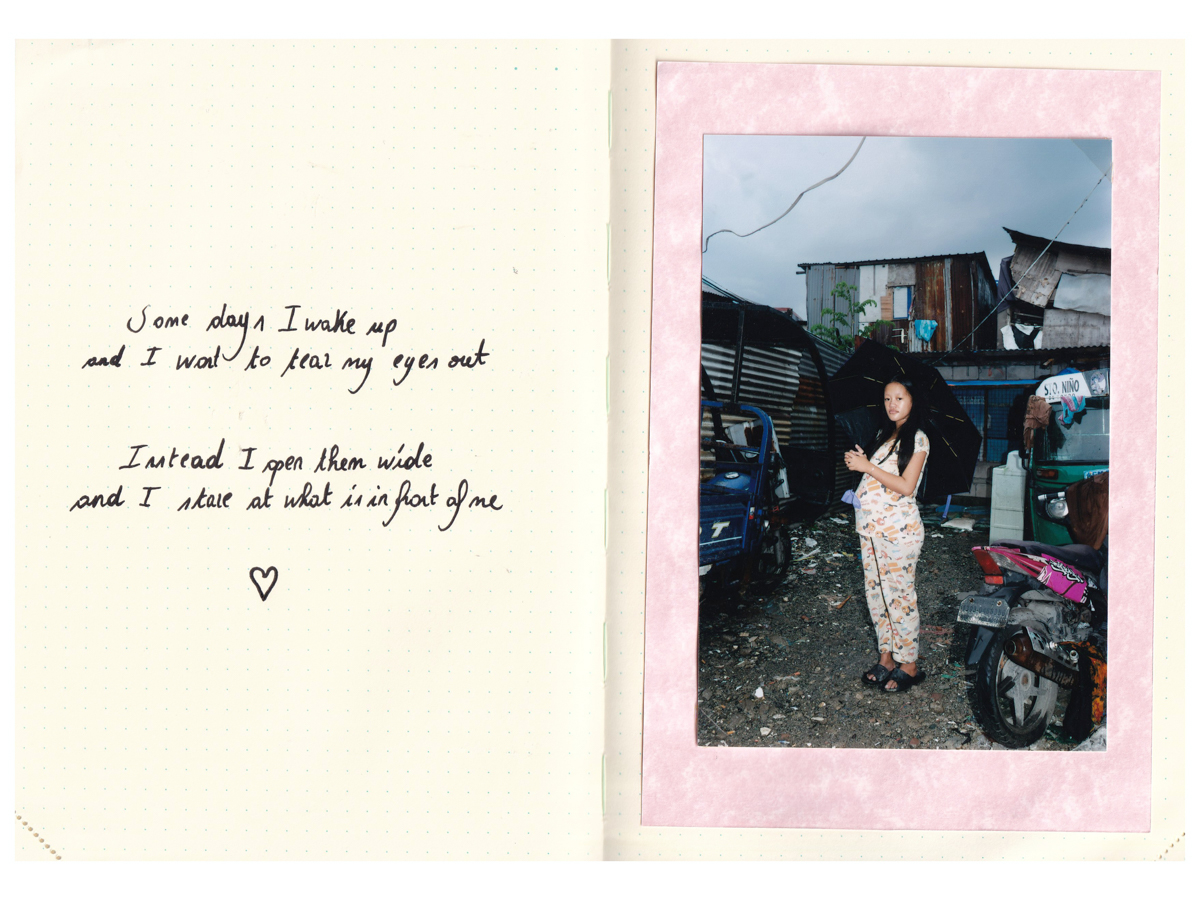 Some days I wake up
and I want to tear my eyes out
Instead I open them wide
and I stare at what is in front of me
STO. NIÑO